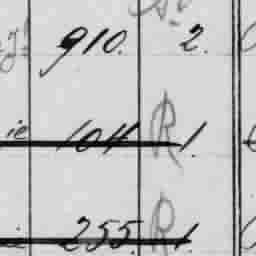 910. 2.
ie 104 R 1.
ie 255. R 1.